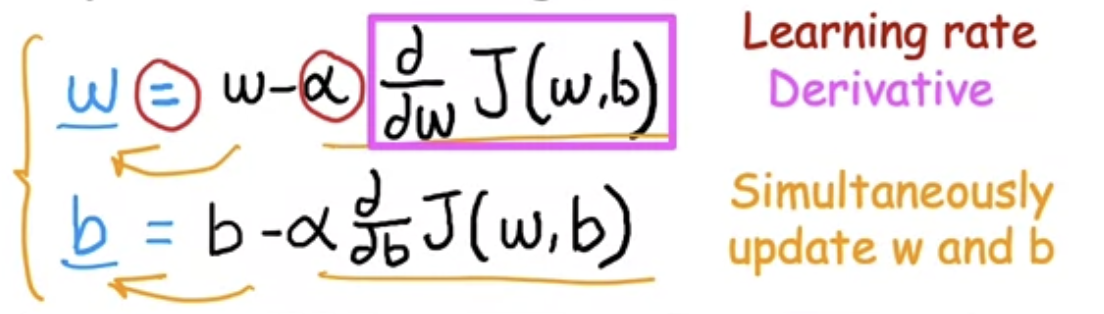 w = w-α d/dw J(w,b)
b = b-α d/db J(w,b)
Learning rate
Derivative
Simultaneously
update w and b